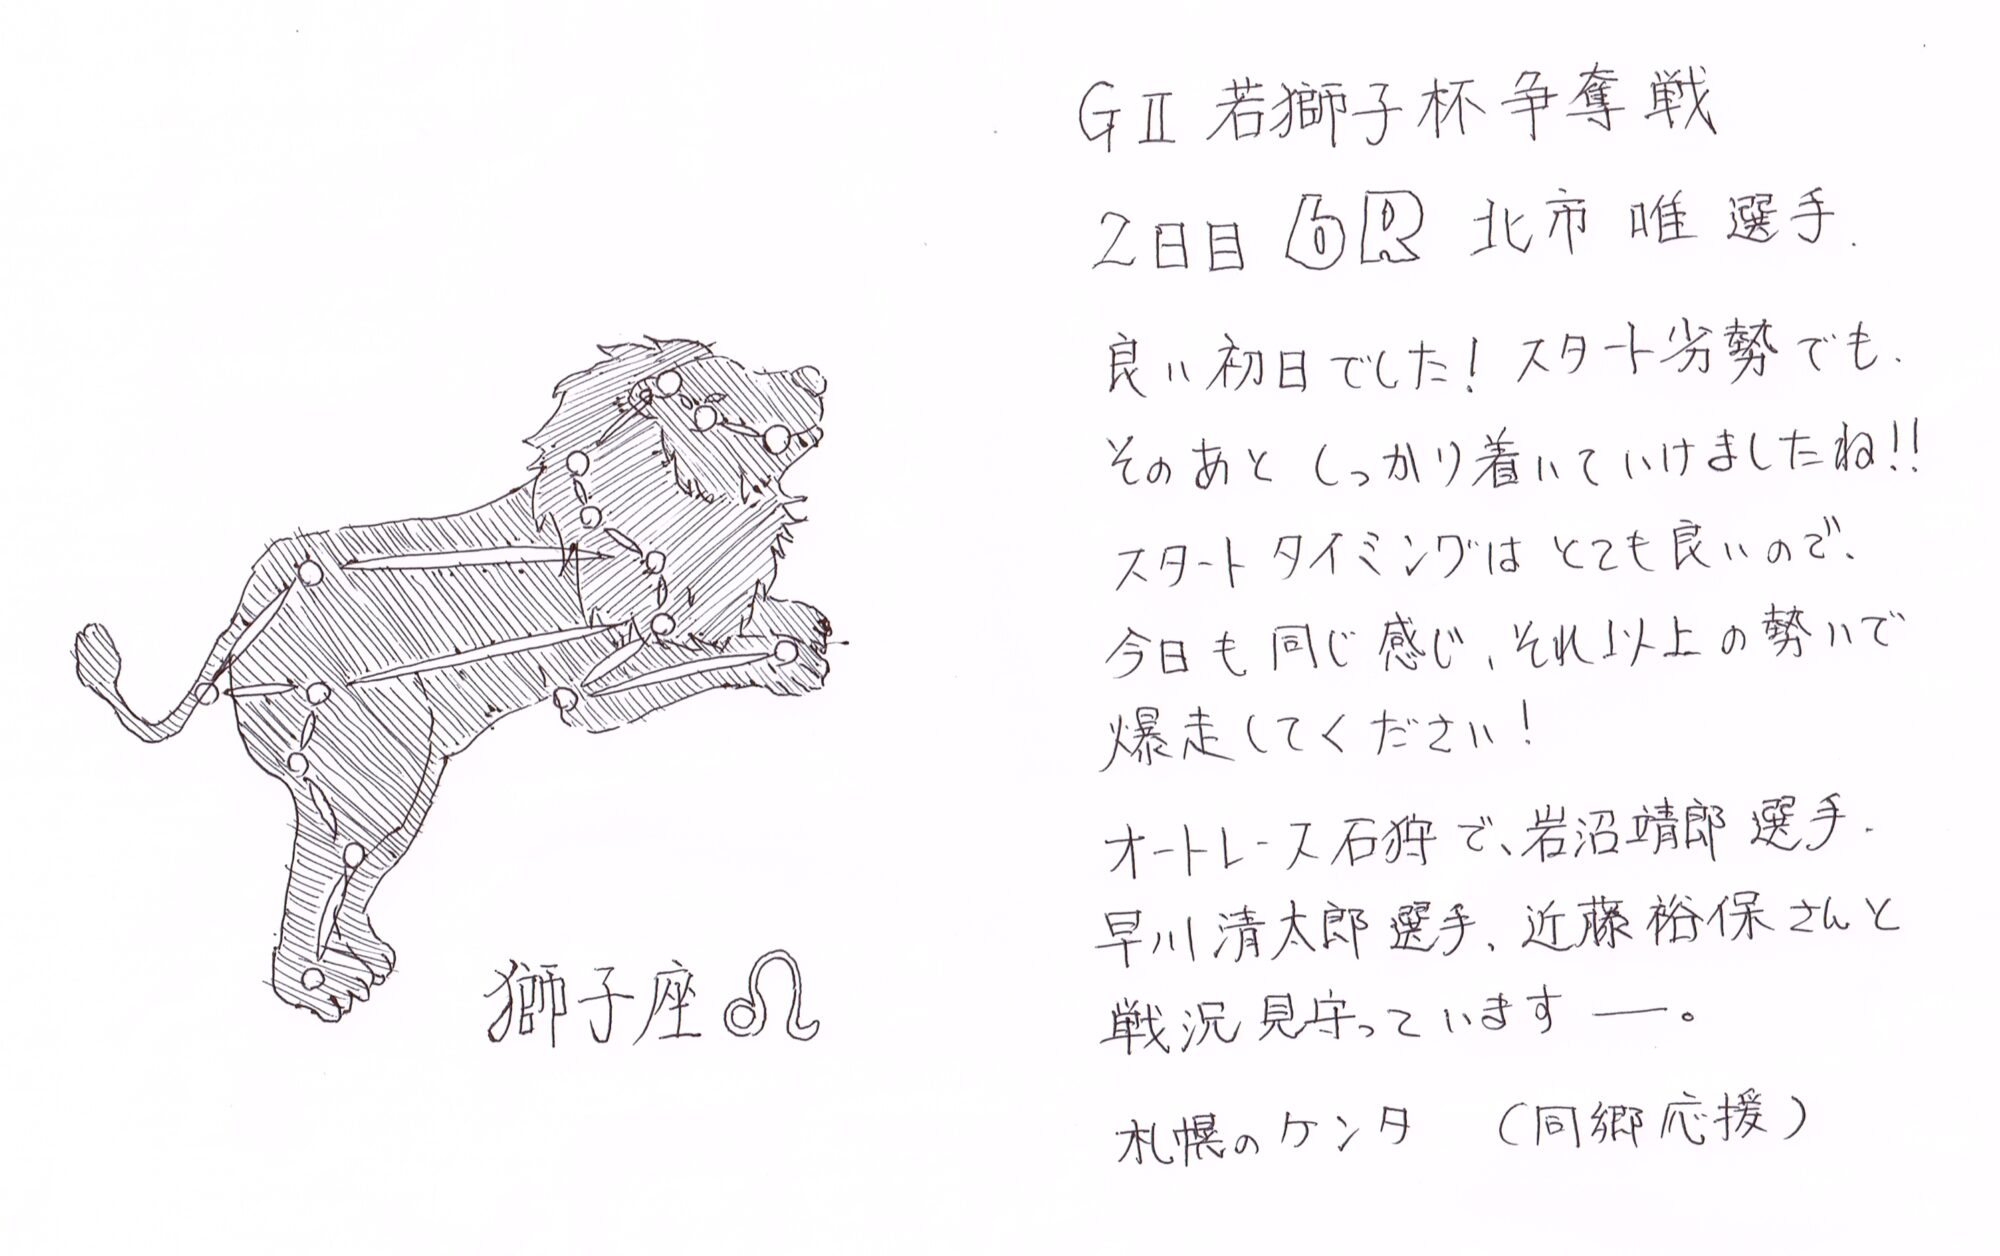 GⅡ 若獅子杯争奪戦
2日目 6R 北市 唯 選手.
良い初日でした! スタート劣勢でも、
そのあと しっかり着いていけましたね!!
スタートタイミングは とても良いので、
今日も 同じ感じ、それ以上の勢いで
爆走してください!
オートレース石狩で、岩沼靖郎選手、
早川清太郎選手、近藤裕保さんと
戦況見守っていますー。
札幌のケンタ (同郷応援)
獅子座 ♌